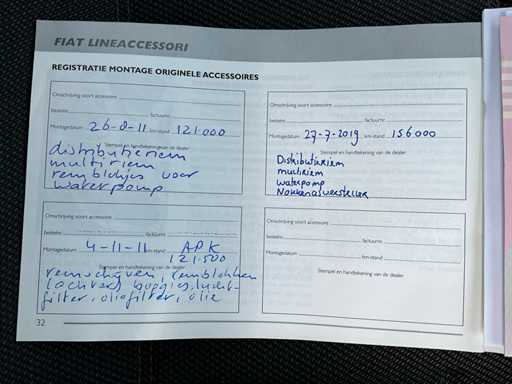 FIAT LINEACCESSORI
REGISTRATIE MONTAGE ORIGINELE ACCESSOIRES
Omschrijving soort accessoire
bestelnr. factuurnr.
Montagedatum 26-8-11 km-stand 121.000
Stempel en handtekening van de dealer
distributieriem
multiriem
remblokjes voor
waterpomp
Omschrijving soort accessoire
bestelnr. factuurnr.
Montagedatum 27-7-2019 km-stand 156000
Stempel en handtekening van de dealer
Distributieriem
multiriem
waterpomp
Nokkenasversteller
Omschrijving soort accessoire
bestelnr. factuurnr.
Montagedatum 4-11-11 km-stand APK
121.500
Stempel en handtekening van de dealer
remschijven, remblokken
(achter) bougies, lucht-
filter, oliefilter, olie
Omschrijving soort accessoire
bestelnr. factuurnr.
Montagedatum km-stand
Stempel en handtekening van de dealer
32